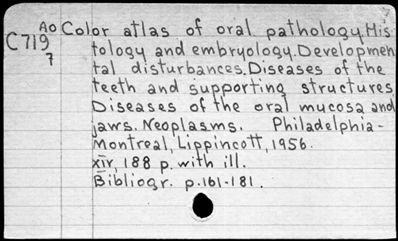 AO Color atlas of oral pathology. His
C719 tology and embryology. Developmen
7 tal disturbances. Diseases of the
teeth and supporting structures
Diseases of the oral mucosa and
jaws. Neoplasms. Philadelphia-
Montreal, Lippincott, 1956.
xiv, 188 p. with ill.
Bibliogr. p. 161-181.